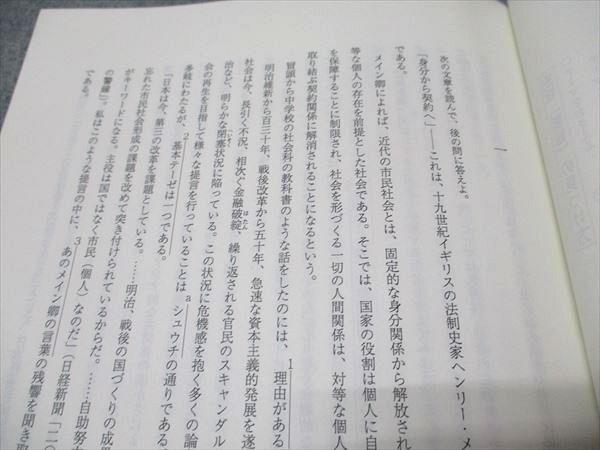 一
次の文章を読んで、後の問に答えよ。
「身分から契約へ」――これは、十九世紀イギリスの法制史家ヘンリー・メ
である。
メイン卿によれば、近代の市民社会とは、固定的な身分関係から解放され
等な個人の存在を前提とした社会である。そこでは、国家の役割は個人に自
を保障することに制限され、社会を形づくる一切の人間関係は、対等な個人
取り結ぶ契約関係に解消されることになるという。
冒頭から中学校の社会科の教科書のような話をしたのには、1理由がある
明治維新から百三十年、戦後改革から五十年、急速な資本主義的発展を遂
社会は今、長引く不況、相次ぐ金融破綻(はたん)、繰り返される官民のスキャンダル
治など、明らかな閉塞(へいそく)状況に陥っている。この状況に危機感を抱く多くの論
会の再生を目指して様々な提言を行っていることはaシュウチの通りである
多岐にわたるが、2基本テーゼは一つである。
「日本は今、第三の改革を課題としている。……明治、戦後の国づくりの成果
忘れた市民社会形成の課題を改めて突き付けられているからだ。……自助努力
がキーワードになる。主役は国ではなく市民(個人)なのだ」(日経新聞「二〇
の警鐘」)。私はこのような提言の中に、3あのメイン卿の言葉の残響を聞き取
である。